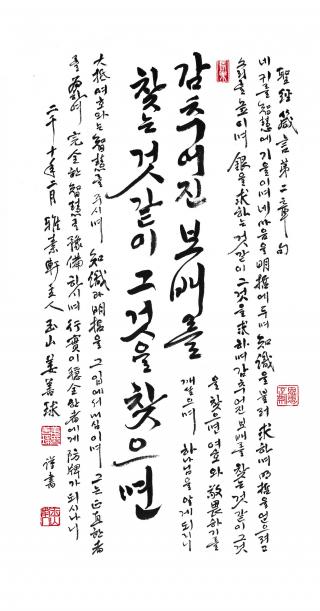 聖經 箴言 第二章 句
네 귀를 智慧에 기울이며 네 마음을 明哲에 두며 知識을 불러 求하며 明哲을 얻으려고
소리를 높이며 銀을 求하는 것같이 그것을 求하며 감추어진 보배를 찾는 것같이 그것
을 찾으면 여호와 敬畏하기를
깨달으며 하나님을 알게 되리니
감추어진 보배를
찾는 것같이 그것을 찾으면
大抵 여호와는 智慧를 주시며 知識과 明哲을 그 입에서 내심이며 그는 正直한 者
를 爲하여 完全한 智慧를 豫備하시며 行實이 穩全한 者에게 防牌가 되시나니
二千十年二月 主人 玉山 姜善球 謹書